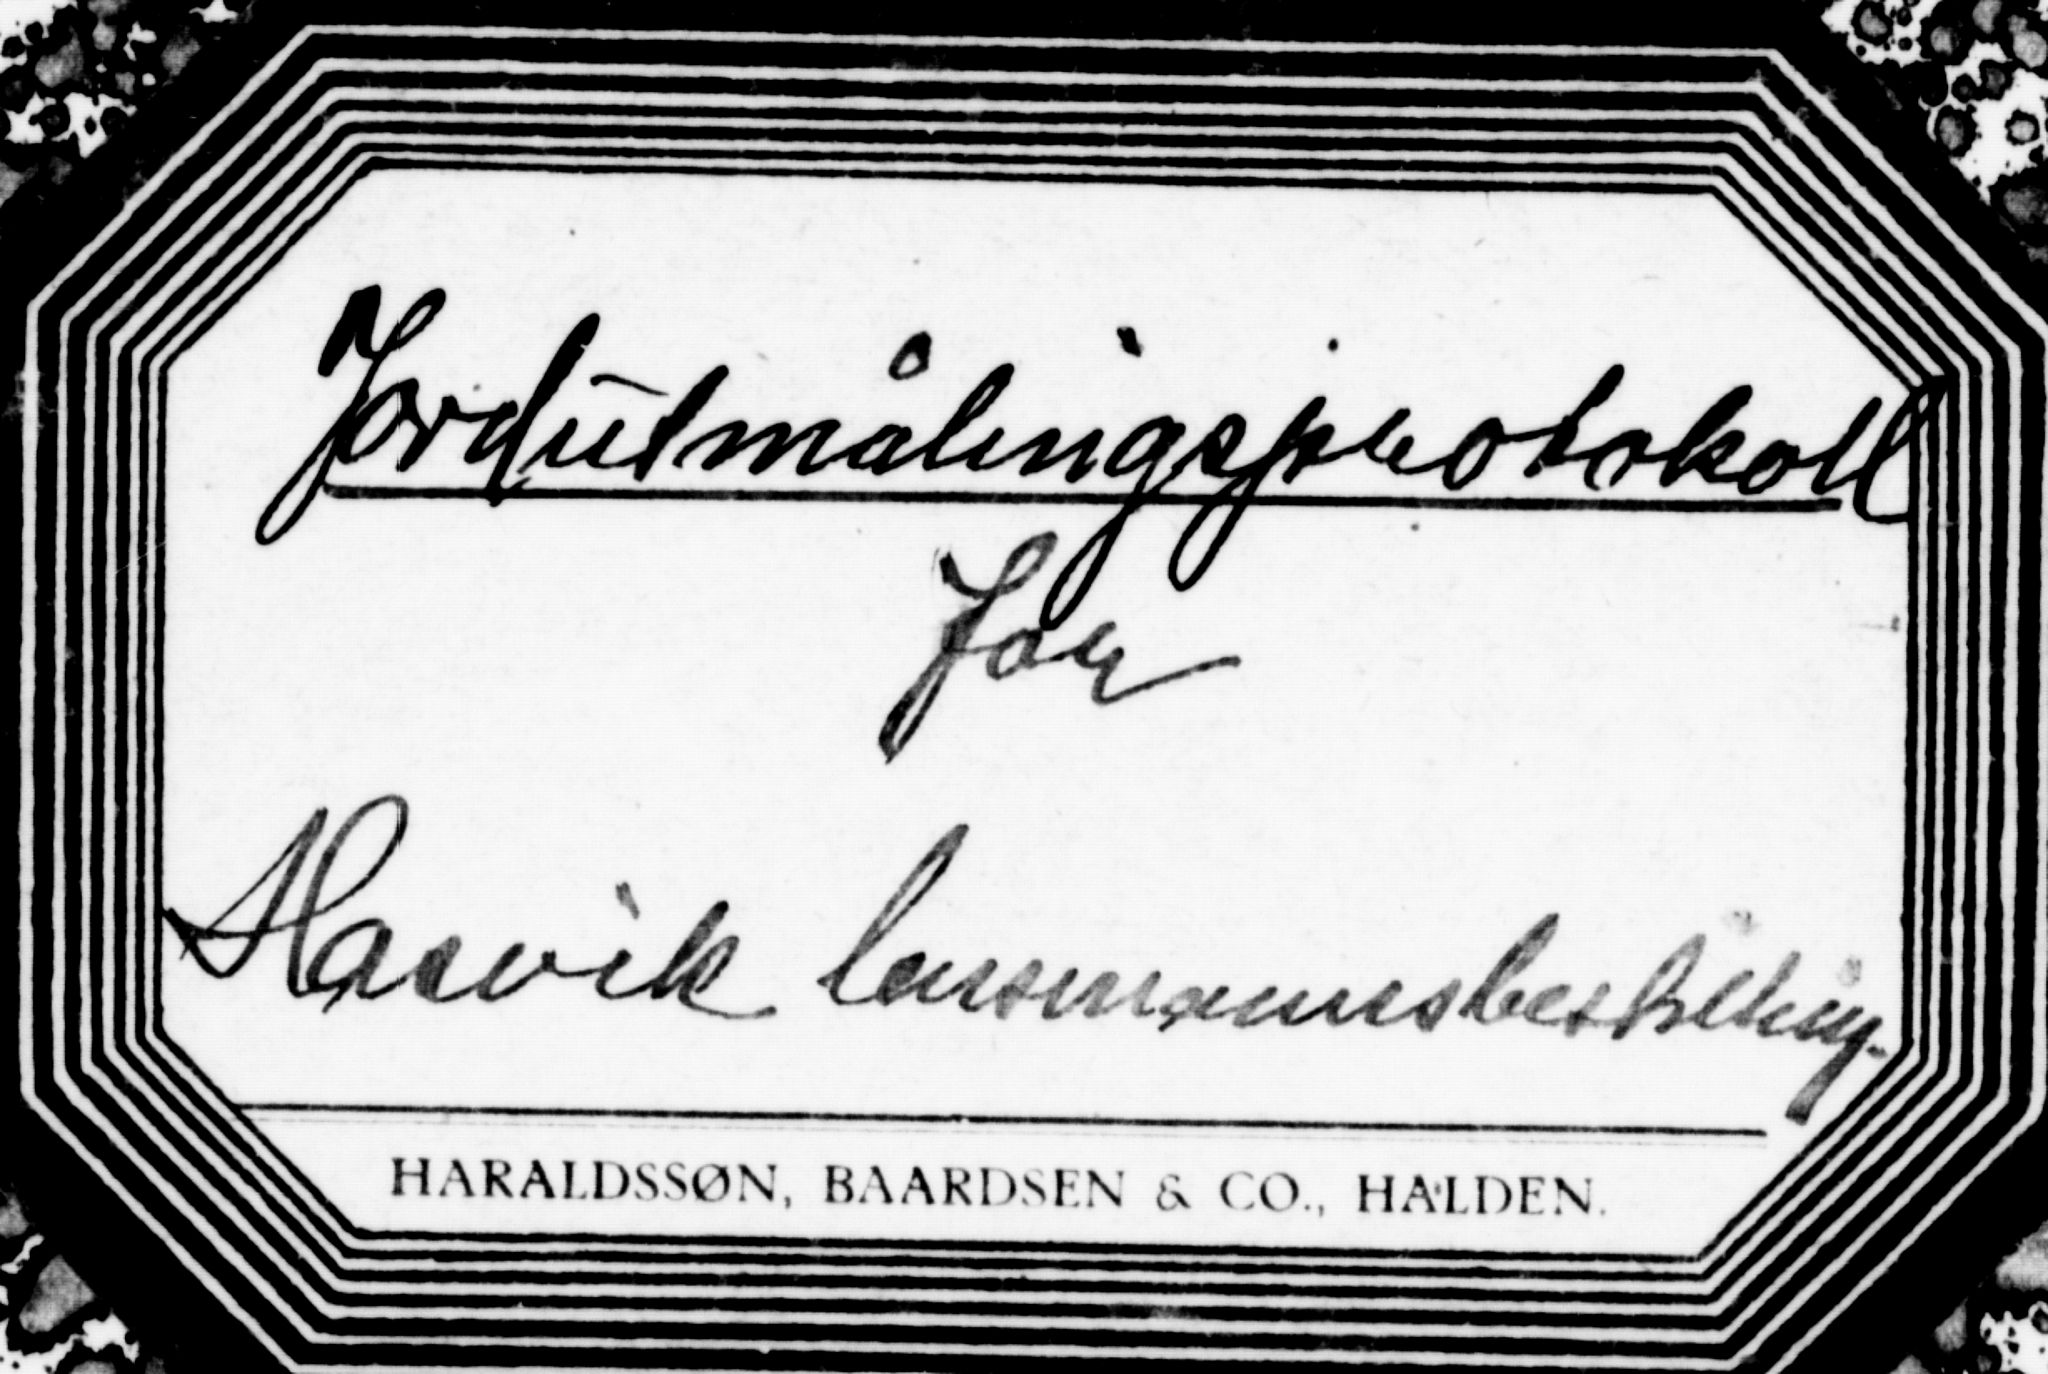 Jordutmålingsprotokoll
for
Hasvik lensmannsbestilling.
HARALDSSØN, BAARDSEN & CO., HALDEN.